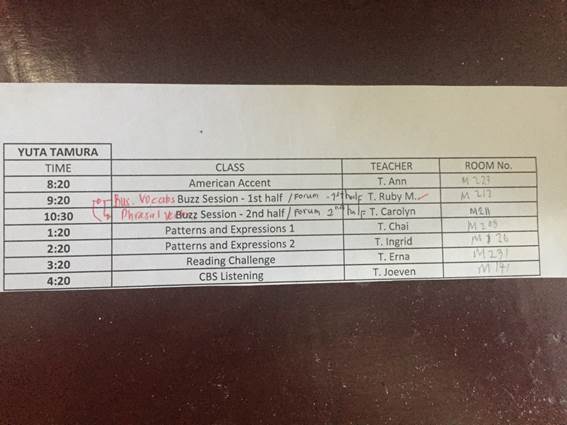 YUTA TAMURA
TIME CLASS TEACHER ROOM No.
8:20 American Accent T. Ann M 227
9:20 Bus. Vocabs Buzz Session - 1st half / Forum - 1st half T. Ruby M. ✓ M 212
10:30 Phrasal Buzz Session - 2nd half / Forum 2nd half T. Carolyn M211
1:20 Patterns and Expressions 1 T. Chai
2:20 Patterns and Expressions 2 T. Ingrid M 126
3:20 Reading Challenge T. Erna M 231
4:20 CBS Listening T. Joeven M 171